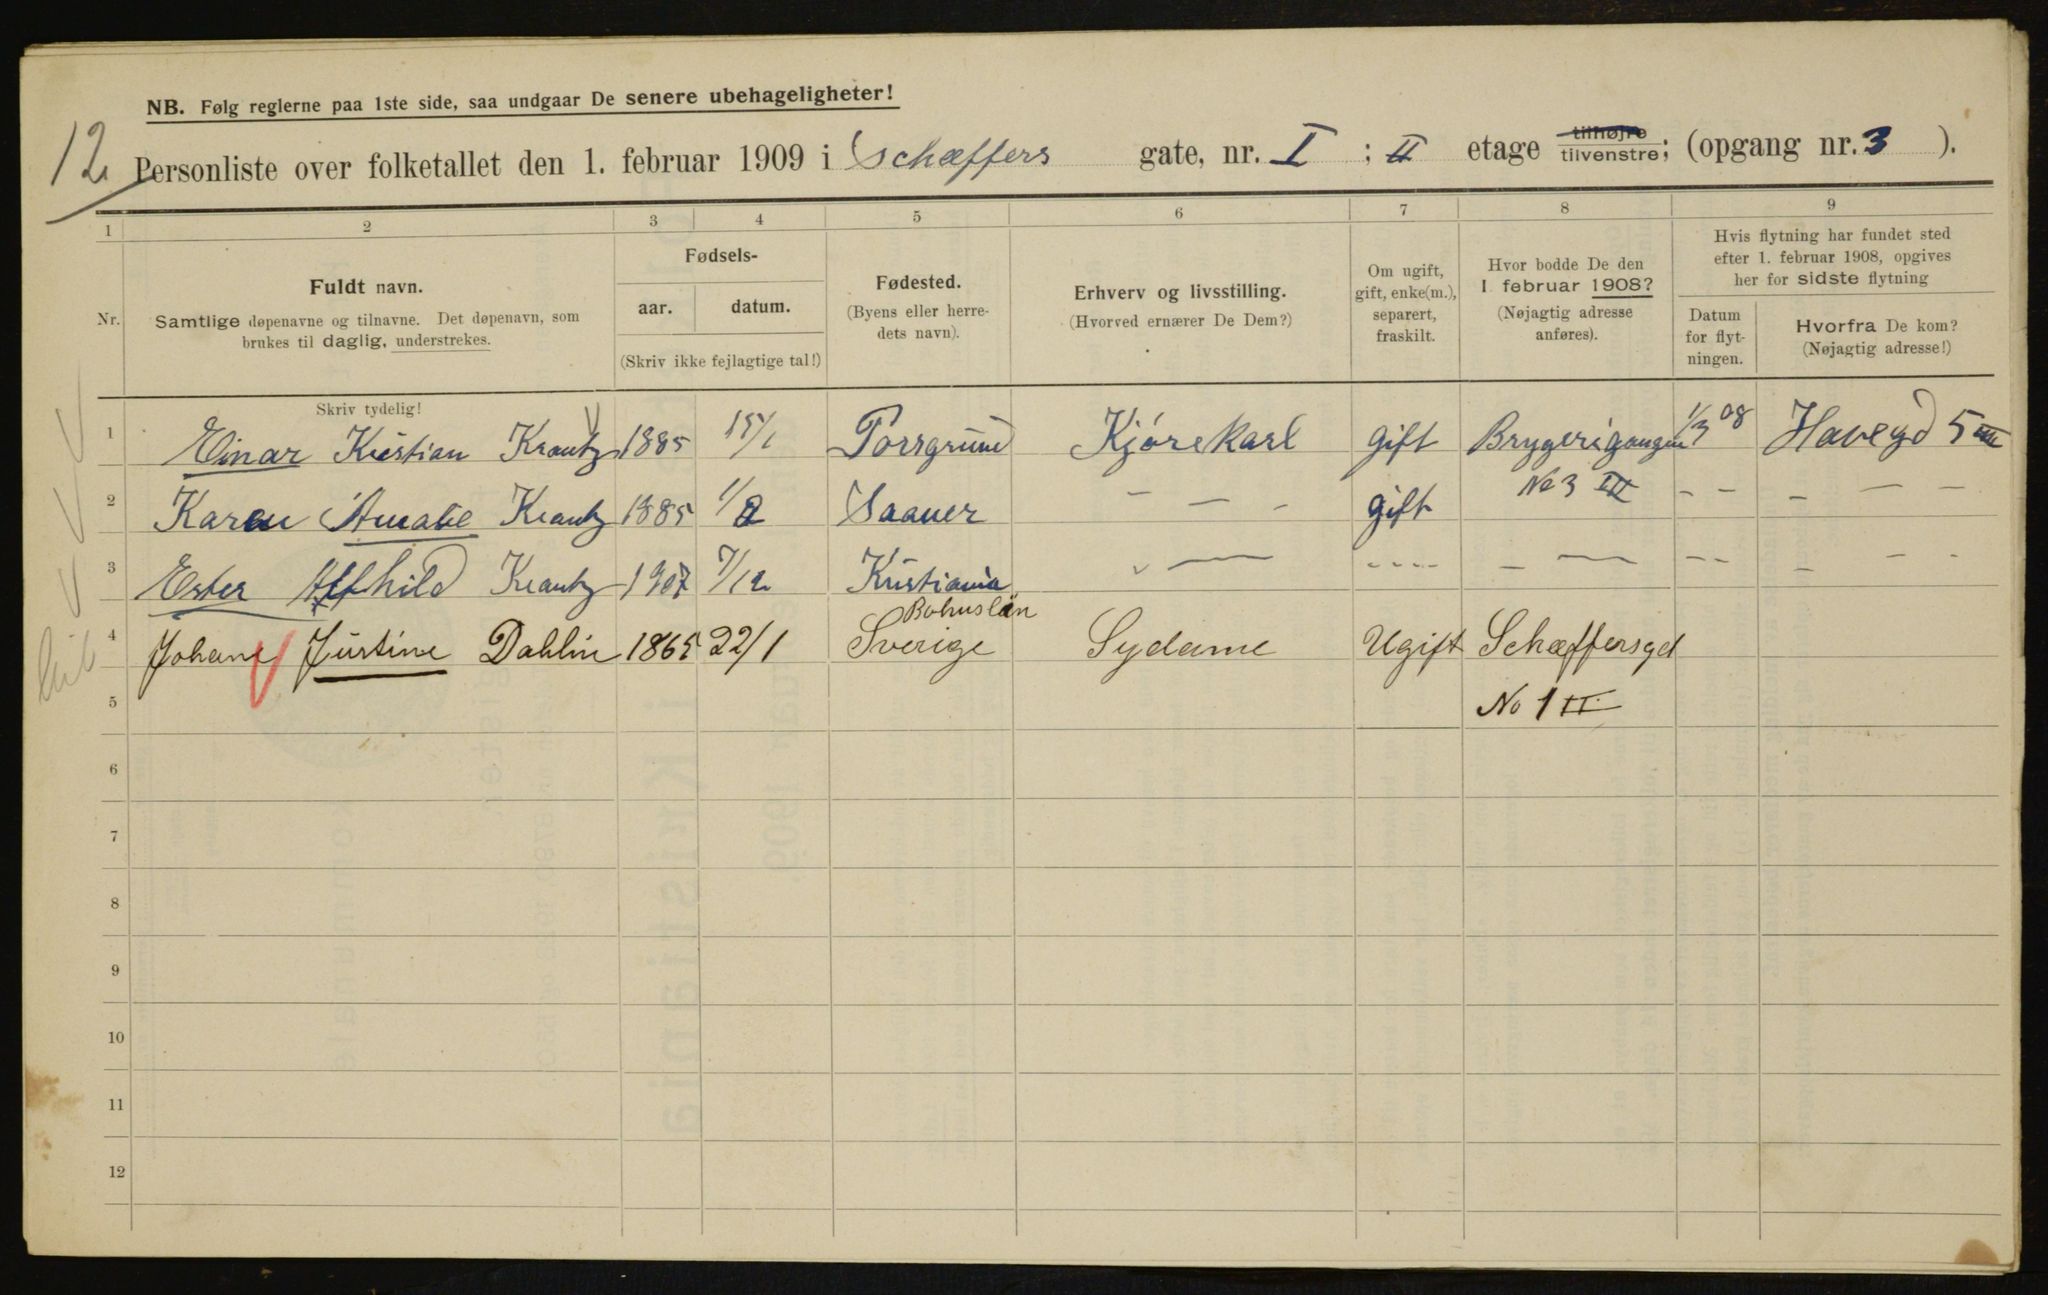 NB. Følg reglerne paa 1ste side, saa undgaar De senere ubehageligheter!
12
Personliste over folketallet den 1. februar 1909 i Schæffers gate, nr. I ; II etage tilhøjre tilvenstre; (opgang nr. 3 ).
1 2 3 4 5 6 7 8 9
Nr.
Fuldt navn.
Samtlige døpenavne og tilnavne. Det døpenavn, som
brukes til daglig, understrekes.
Skriv tydelig!
Fødsels-
aar. datum.
(Skriv ikke fejlagtige tal!)
Fødested.
(Byens eller herre-
dets navn).
Erhverv og livsstilling.
(Hvorved ernærer De Dem?)
Om ugift,
gift, enke(m.),
separert,
fraskilt.
Hvor bodde De den
1. februar 1908?
(Nøjagtig adresse
anføres).
Hvis flytning har fundet sted
efter 1. februar 1908, opgives
her for sidste flytning
Datum
for flyt-
ningen.
Hvorfra De kom?
(Nøjagtig adresse!)
1 Einar Kristian Krantz 1885 15/1 Porsgrund Kjørekarl gift Bryggerigangen 1/3 08 Havegd 5 III
2 Karen Amalie Krantz 1885 1/2 Saaner — — - gift No 3 III - - - — -
3 Ester Alfhild Krantz 1907 7/12 Kristiania - — - - - - - — - - - - -
4 Johane Justine Dahlin 1865 22/1 Bohuslän
Sverige Sydame Ugift Schæffersgd
5 No 1 II
6
7
8
9
10
11
12